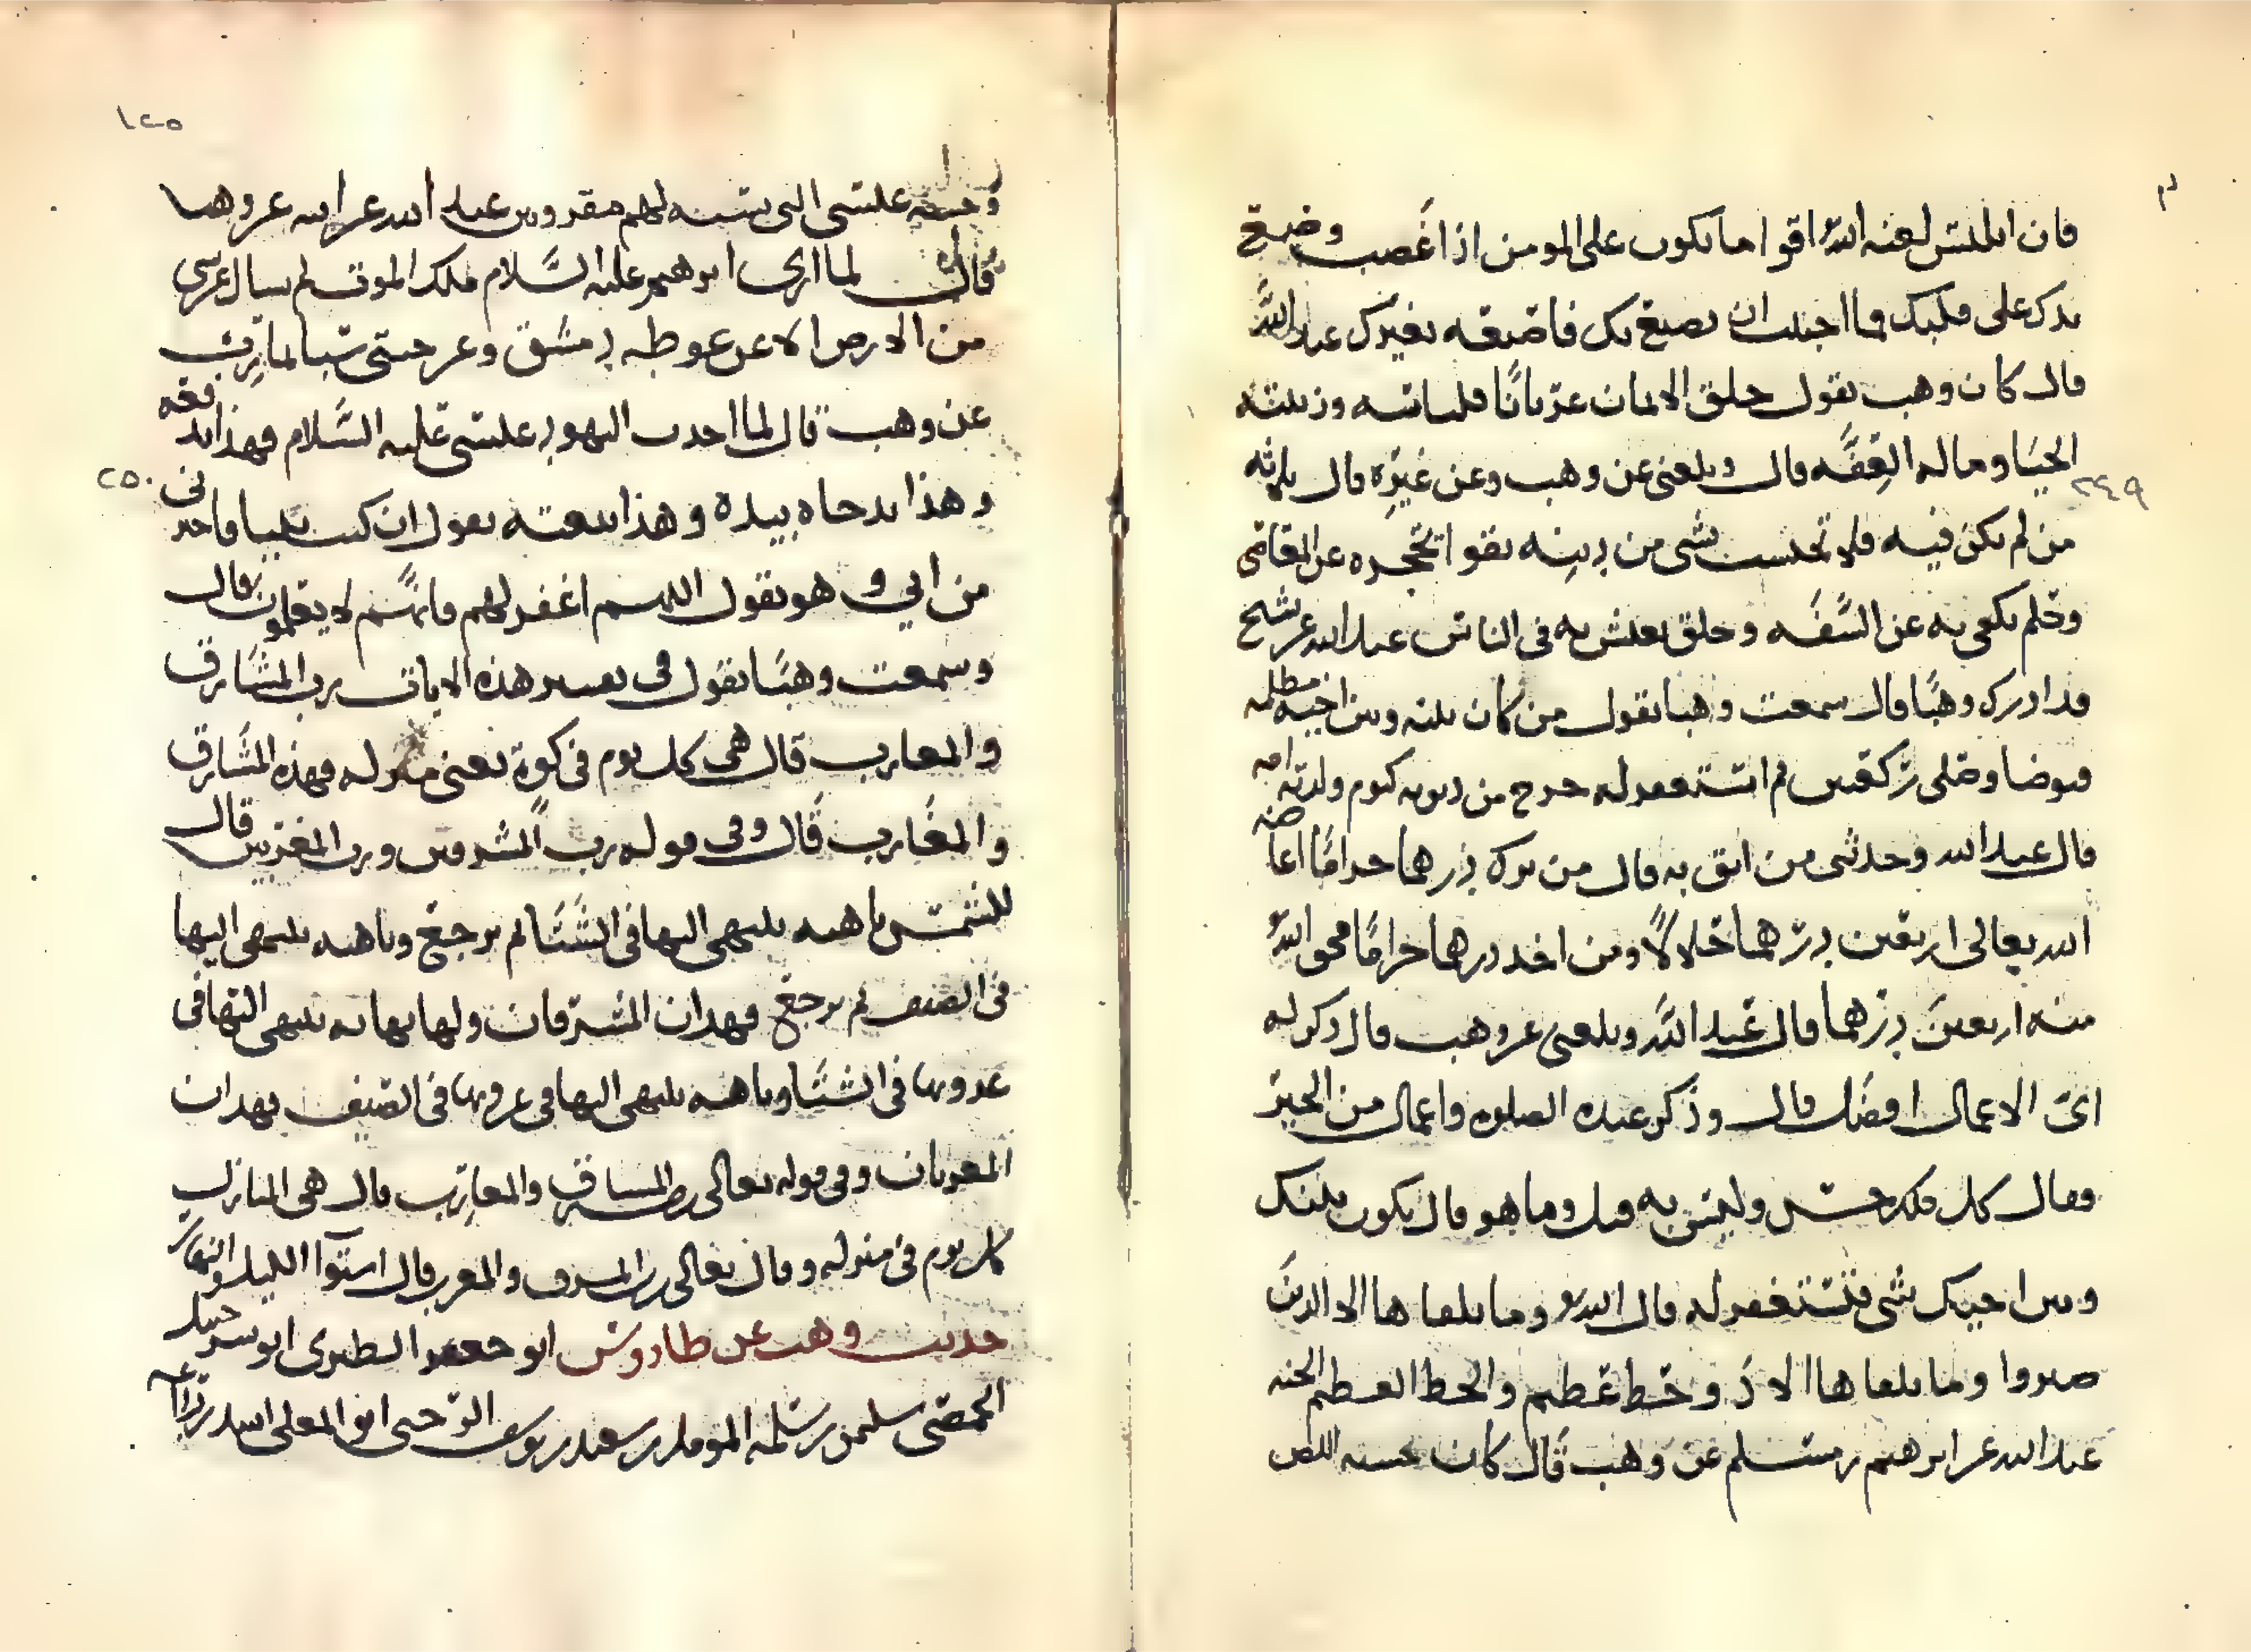 فان ابليس لعنه الله اقوا ما يكون على المومن اذا غضب وضع
يدك على منكبك فما احببت ان يصنع بك فاصنعه بغيرك عبد الله
قال كان وهب يقول خلق الايمان عريانا فلباسه وزينته
الحيا وماله العفه قال وبلغني عن وهب وعن غيره قال ثلاثه
من لم يكن فيه فلا تحتسب بشي من دينه تقوا تحجره عن المعاصي
وحلم يكف به عن السفه وخلق يعيش به في الناس عبد الله عن شيخ
قد ادرك وهبا قال سمعت وهبا يقول من كان بينه وبين اخيه مظلمه
فتوضا وصلى ركعتين ثم استغفر له خرج من ذنوبه كيوم ولدته امه
قال عبد الله وحدثني من اثق به قال من ترك درهما حراما اعاضه
الله تعالى اربعين درهما حلالا ومن اخذ درهما حراما محق الله
منه اربعين درهما قال عبد الله وبلغني عن وهب قال ذكر له
اي الاعمال افضل قال وذكر عنده الصلوه واعمال من الخير
فقال كل ذلك حسن وليس به قيل وما هو قال يكون بينك
وبين اخيك شي فتستغفر له قال الله وما يلقاها الا الذين
صبروا وما يلقاها الا ذو حظ عظيم والحظ العظيم الجنه
عبد الله عن ابرهيم بن مسلم عن وهب قال كان اللص
١٢٥
عيسى الذي شبه لهم عبد الله عن ابيه عن وهب
قال لما ارى ابرهيم عليه السلام ملك الموت لم يسال عن شي
من الارض الا عن غوطه دمشق وعن حيتي سبا لمارب
عن وهب قال لما اخذت اليهود عيسى عليه السلام فهذا يدفعه
وهذا يدحاه بيده وهذا يقول ان كنت نبيا فاخبرني
من ابي وهو يقول اللهم اغفر لهم فانهم لا يعلمون قال
وسمعت وهبا يقول في تفسير هذه الايات برب المشارق
والمغارب قال هي كل يوم في كوة يعني منزله فهذه المشارق
والمغارب قال وفي قوله رب المشرقين ورب المغربين قال
للشمس ناهيه ينتهي اليها في الشتا ثم يرجع وناهيه ينتهي اليها
في الصيف ثم يرجع فهذان المشرقان ولها نهايه ينتهي اليها في
غروبها في الشتا وناهيه ينتهي اليها في غروبها في الصيف فهذان
المغربان وفي قوله تعالى رب المشارق والمغارب قال هي المنازل
كل يوم في منزله وقال تعالى رب المشرق والمغرب قال استوا الليل والنهار
حديث وهب عن طاووس ابو جعفر الطبري ابو شرحبيل
الحمصي سليمن بن سلمه المومل بن سعيد بن يوسف الرحبي ابو المعلى اسد بن وداعه
٢٤٩
٢٥٠